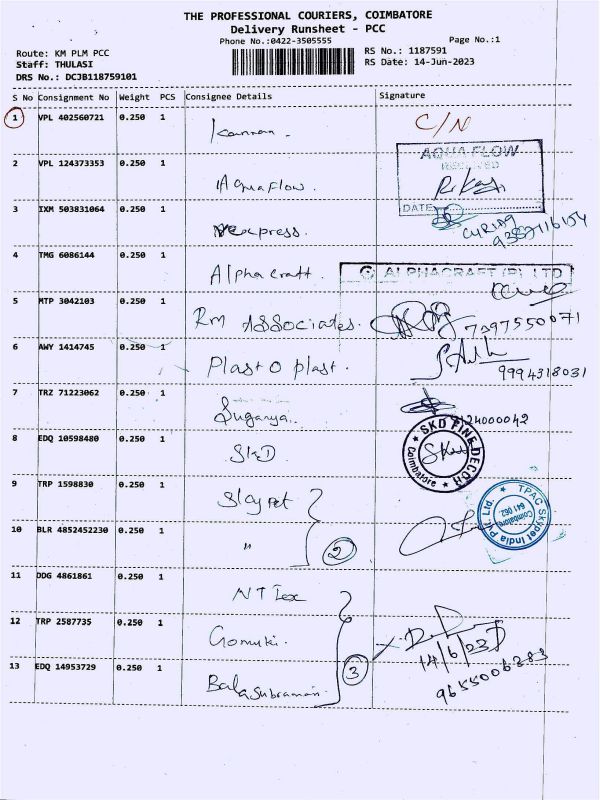 THE PROFESSIONAL COURIERS, COIMBATORE
Delivery Runsheet - PCC
Phone No.:0422-3505555
Page No.:1
Route: KM PLM PCC
Staff: THULASI
DRS No.: DCJB118759101
RS No.: 1187591
RS Date: 14-Jun-2023
S No Consignment No Weight PCS Consignee Details Signature
1 VPL 402560721 0.250 1 Kannan. C/N
2 VPL 124373353 0.250 1 Aquaflow. AQUA FLOW
RECEIVED
DATE
3 IXM 503831064 0.250 1 express.
4 TMG 6086144 0.250 1 Alphacraft. ALPHACRAFT (P) LTD
5 MTP 3042103 0.250 1 RM Associates. 7397550071
6 AWY 1414745 0.250 1 Plast O plast. 9994318031
7 TRZ 71223062 0.250 1 Suganya. 24000042
8 EDQ 10598480 0.250 1 SKD SKD FINE DECOR
Coimbatore
9 TRP 1598830 0.250 1 Skypet TPAC Skypet India Pvt. Ltd.
Coimbatore
641 062
10 BLR 4852452230 0.250 1 " 2
11 DDG 4861861 0.250 1 NT Tex
12 TRP 2587735 0.250 1 Gomuki. 14/6/23
13 EDQ 14953729 0.250 1 Balasubraman. 3 9655006283